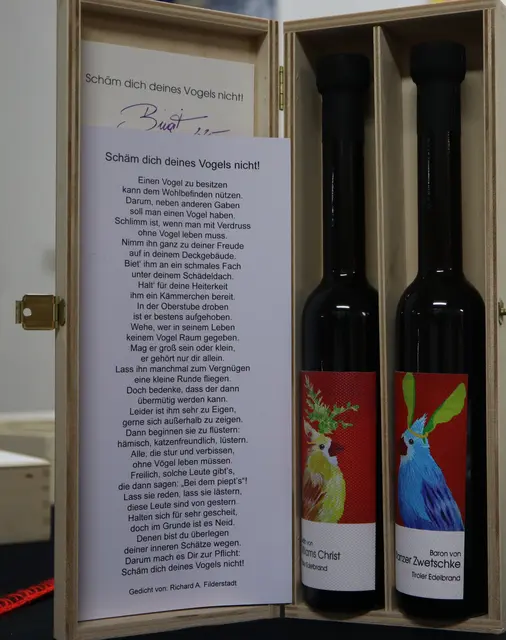 Schäm dich deines Vogels nicht!
Birgit
Schäm dich deines Vogels nicht!
Einen Vogel zu besitzen
kann dem Wohlbefinden nützen.
Darum, neben anderen Gaben
soll man einen Vogel haben.
Schlimm ist, wenn man mit Verdruss
ohne Vogel leben muss.
Nimm ihn ganz zu deiner Freude
auf in deinem Deckgebäude.
Biet' ihm an ein schmales Fach
unter deinem Schädeldach.
Halt' für deine Heiterkeit
ihm ein Kämmerchen bereit.
In der Oberstube droben
ist er bestens aufgehoben.
Wehe, wer in seinem Leben
keinem Vogel Raum gegeben.
Mag er groß sein oder klein,
er gehört nur dir allein.
Lass ihn manchmal zum Vergnügen
eine kleine Runde fliegen.
Doch bedenke, dass der dann
übermütig werden kann.
Leider ist ihm sehr zu Eigen,
gerne sich außerhalb zu zeigen.
Dann beginnen sie zu flüstern:
hämisch, katzenfreundlich, lüstern.
Alle, die stur und verbissen,
ohne Vögel leben müssen.
Freilich, solche Leute gibt's,
die dann sagen: „Bei dem piept's"!
Lass sie reden, lass sie lästern,
diese Leute sind von gestern.
Halten sich für sehr gescheit,
doch im Grunde ist es Neid.
Denen bist du überlegen
deiner inneren Schätze wegen.
Darum mach es Dir zur Pflicht:
Schäm dich deines Vogels nicht!
Gedicht von: Richard A. Filderstadt
von
iams Christ
Edelbrand
Baron von
anzer Zwetschke
Tiroler Edelbrand